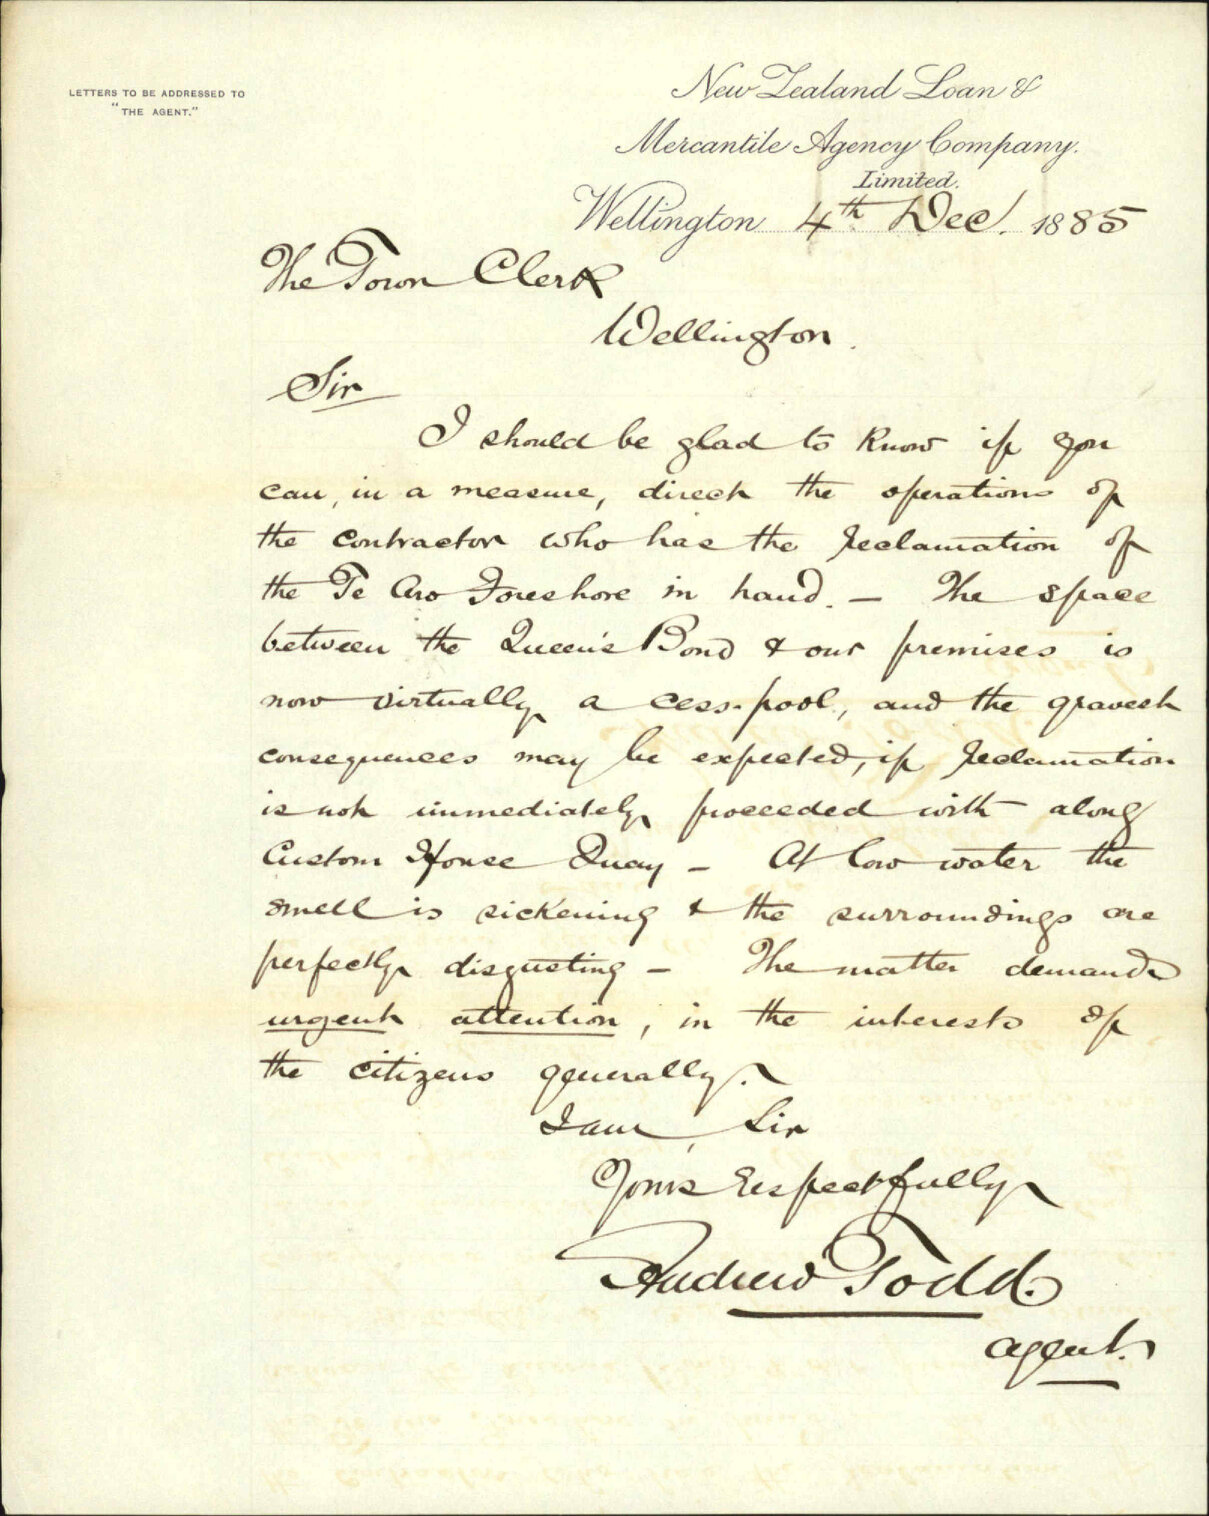 LETTERS TO BE ADDRESSED TO
"THE AGENT."
New Zealand Loan &
Mercantile Agency Company.
Limited.
Wellington 4th Dec. 1885
The Town Clerk
Wellington.
Sir
I should be glad to know if you
can, in a measure, direct the operations of
the contractor who has the reclamation of
the Te Aro Foreshore in hand. — The space
between the Queen's Bond & our premises is
now virtually a cess-pool, and the gravest
consequences may be expected, if reclamation
is not immediately proceeded with along
Custom House Quay — At low water the
smell is sickening & the surroundings are
perfectly disgusting — The matter demands
urgent attention, in the interests of
the citizens generally.
I am, Sir
Yours respectfully
Andrew Todd.
agent.